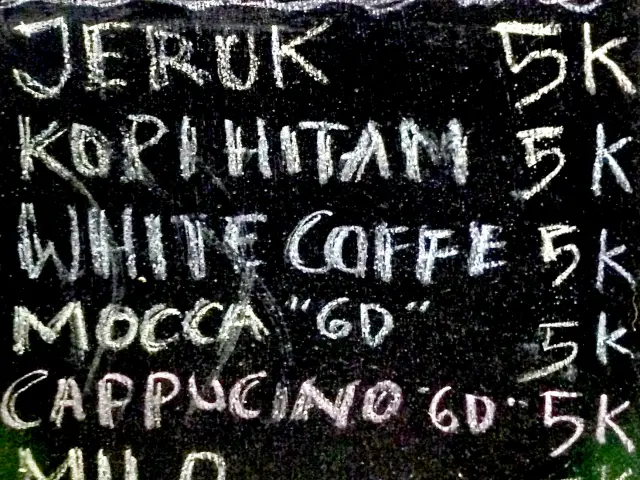 JERUK 5K
KOPI HITAM 5K
WHITE COFFE 5K
MOCCA "GD" 5K
CAPPUCINO "GD" 5K
MILO